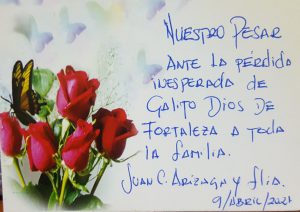 NUESTRO PESAR
ANTE LA PÉRDIDA
INESPERADA DE
GALITO DIOS DE
FORTALEZA A TODA
LA FAMILIA.
JUAN C. ARIZAGA Y FLIA.
9/ABRIL/2021